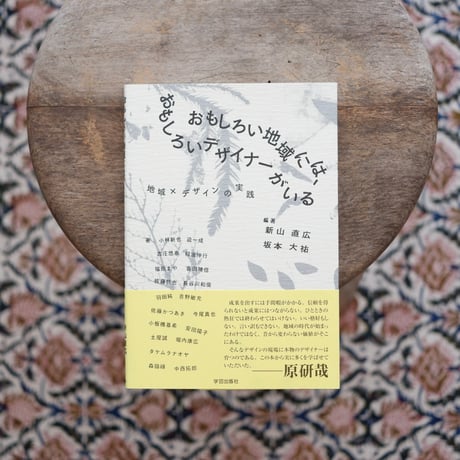 おもしろい地域には、
おもしろいデザイナーがいる
地域×デザインの実践
編著
新山 直広
坂本 大祐
著
小林新也 迫一成
古庄悠泰 稲波伸行
福田まや 吉田勝信
佐藤哲也 長谷川和俊
羽田純 吉野敏充
佐藤かつあき 今尾真也
小板橋基希 安田陽子
土屋誠 堀内康広
タケムラナオヤ
森脇碌 中西拓郎
成果を出すには手間暇がかかる。信頼を得
られないと成果にはつながらない。ひとときの
熱狂では終わらせてはいけない。いい格好もし
ない。言い訳もできない。地域の時代が始まっ
たわけではなく、昔から変わらない価値がそこ
にある。
そんなデザインの現場に本物のデザイナーは
育つのである。この本から実に多くを学ばせて
いただいた。
——原研哉
学芸出版社